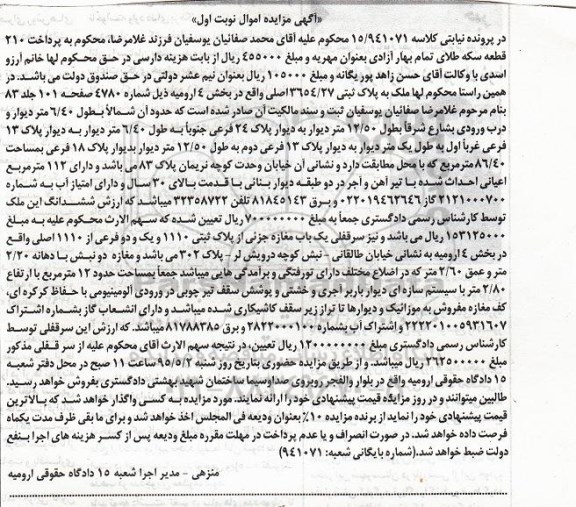 «آگهی مزایده اموال نوبت اول»
در پرونده نیابتی کلاسه ۱۵/۹۴۱۰۷۱ محکوم علیه آقای محمد صفائیان یوسفیان فرزند غلامرضا، محکوم به پرداخت ۲۱۰
قطعه سکه طلای تمام بهار آزادی بعنوان مهریه و مبلغ ۴۵۵۰۰۰ ریال از بابت هزینه دادرسی در حق محکوم لها خانم آرزو
اسدی با وکالت آقای حسن زاهد پور یگانه و مبلغ ۱۰۵۰۰۰ ریال بعنوان نیم عشر دولتی در حق صندوق دولت می باشد. در
همین راستا محکوم لها ملک به پلاک ثبتی ۳۶۵۴/۲۷ اصلی واقع در بخش ۴ ارومیه ذیل شماره ۴۷۸۰ صفحه ۱۰۱ جلد ۸۳
بنام مرحوم غلامرضا صفائیان یوسفیان ثبت و سند مالکیت آن صادر شده است که حدود آن شمالاً بطول ۶/۴۰ متر دیوار و
درب ورودی بشارع شرقاً بطول ۱۲/۵۰ متر دیوار به دیوار پلاک ۲۴ فرعی جنوباً به طول ۶/۴۰ متر دیوار به دیوار پلاک ۱۳
فرعی غرباً اول به طول یک متر دیوار به دیوار پلاک ۱۳ فرعی دوم به طول ۱۲/۵۰ متر دیوار بدیوار پلاک ۱۸ فرعی بمساحت
۸۶/۴۰ مترمربع که با محل مطابقت دارد و نشانی آن خیابان وحدت کوچه نریمان پلاک ۸۳ می باشد و دارای ۱۱۲ متر مربع
اعیانی احداث شده با تیر آهن و آجر در دو طبقه دیوار بنائی با قدمت بالای ۳۰ سال و دارای امتیاز آب به شماره
۲۱۲۱۰۰۰۷۰۰ گاز ۰۲۲۰۱۹۴۶۲۶۴۶ و برق ۸۱۸۴۵۱۴۳ تلفن ۳۲۳۵۸۷۲۲ میباشد که ارزش ششدانگ این ملک
توسط کارشناس رسمی دادگستری جمعاً به مبلغ ۷۰۰۰۰۰۰۰۰ ریال تعیین شده که سهم الارث محکوم علیه به مبلغ
۱۵۳۱۲۵۰۰۰ ریال می باشد و نیز سرقفلی یک باب مغازه جزئی از پلاک ثبتی ۱۱۱۰ و یک و دو فرعی از ۱۱۱۰ اصلی واقع
در بخش ۴ ارومیه به نشانی خیابان طالقانی - نبش کوچه درویش لر - پلاک ۳۰۲ می باشد و مغازه دو نبش با دهانه ۲/۲۰
متر و عمق ۲/۶۰ متر که در اضلاع مختلف دارای تورفتگی و برآمدگی هایی میباشد جمعاً بمساحت حدود ۱۲ مترمربع با ارتفاع
۲/۸۰ متر با سیستم سازه ای دیوار باربر آجری و خشتی و پوشش سقف تیر چوبی در ورودی آلومینیومی با حفاظ کرکره ای،
کف مغازه مفروش به موزائیک و دیوارها تا تراز زیر سقف کاشیکاری شده میباشد و دارای انشعاب گاز بشماره اشتراک
۲۲۲۲۰۱۰۰۵۹۳۱۶۰۷ و اشتراک آب بشماره ۲۸۲۲۰۰۰۱۰۰ و برق ۸۱۷۸۸۳۸۵ میباشد. که ارزش این سرقفلی توسط
کارشناس رسمی دادگستری مبلغ ۱۲۰۰۰۰۰۰۰۰ ریال تعیین، در نتیجه سهم الارث آقای محکوم علیه از سر قفلی مذکور
مبلغ ۲۶۲۵۰۰۰۰۰ ریال میباشد. و از طریق مزایده حضوری بتاریخ روز شنبه ۹۵/۵/۲ ساعت ۱۱ صبح در محل دفتر شعبه
۱۵ دادگاه حقوقی ارومیه واقع در بلوار والفجر روبروی صداوسیما ساختمان شهید بهشتی دادگستری بفروش خواهد رسید.
طالبین میتوانند و در روز مزایده قیمت پیشنهادی خود را ارائه نمایند. مورد مزایده به کسی واگذار خواهد شد که بالاترین
قیمت پیشنهادی خود را نماید از برنده مزایده ۱۰٪ بعنوان ودیعه فی المجلس اخذ خواهد شد و برای ما بقی ظرف مدت یکماه
فرصت داده خواهد شد. در صورت انصراف و یا عدم پرداخت در مهلت مقرره مبلغ ودیعه پس از کسر هزینه های اجرا بنفع
دولت ضبط خواهد شد.(شماره بایگانی شعبه: ۹۴۱۰۷۱)
منزهی - مدیر اجرا شعبه ۱۵ دادگاه حقوقی ارومیه